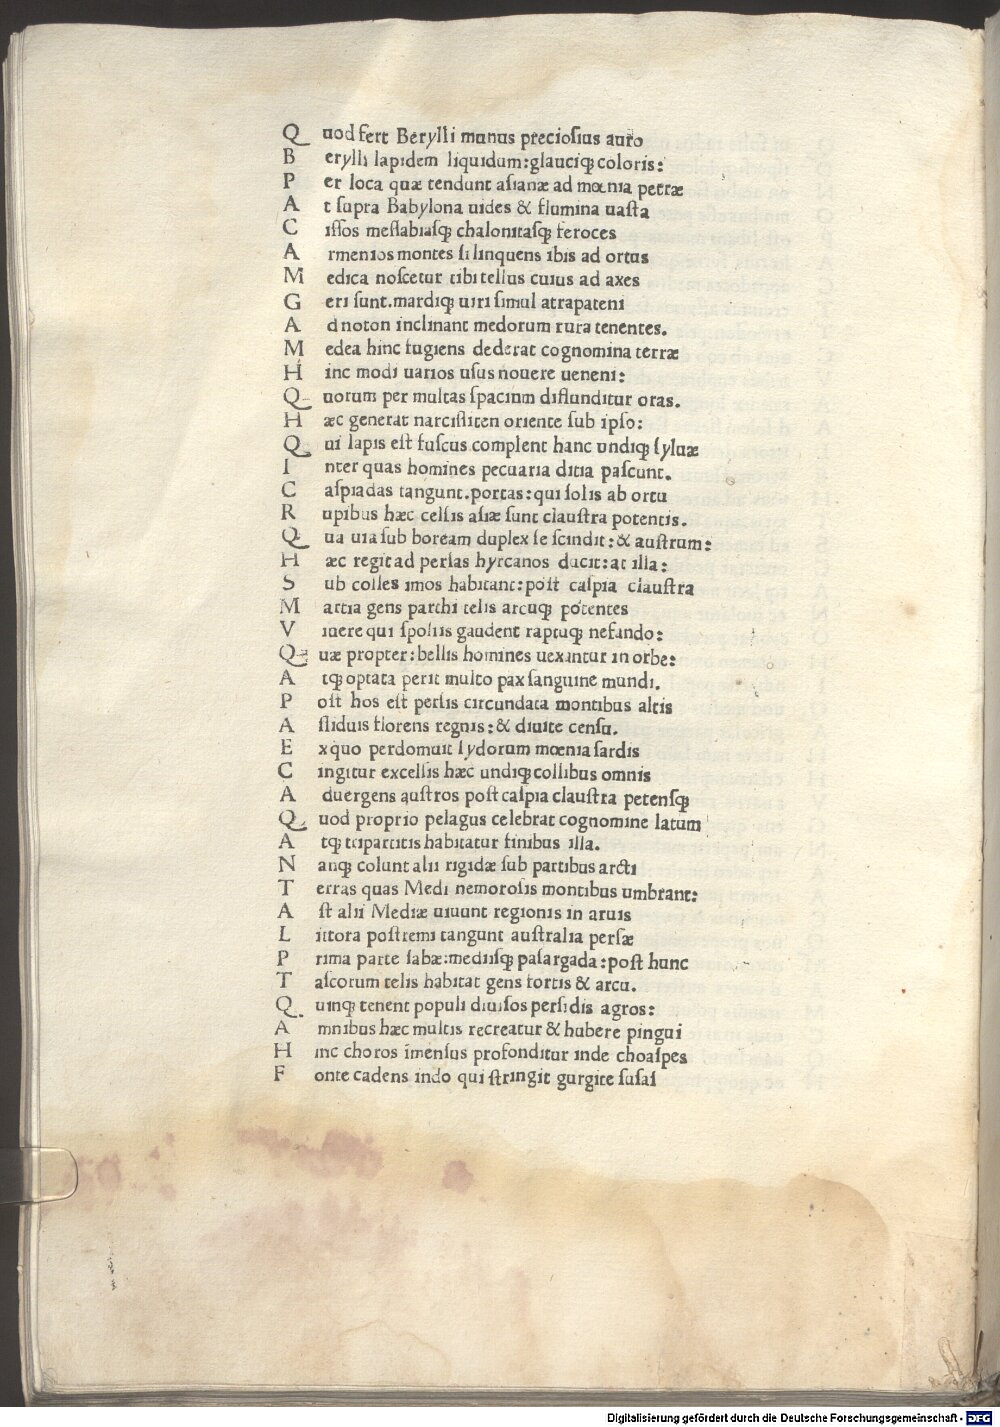 Quod fert Berylli munus preciosius auro
Berylli lapidem liquidum:glauciqꝫ coloris:
Per loca quæ tendunt asianæ ad mœnia petræ
At supra Babylona uides & flumina uasta
Cissos messabiasqꝫ chalonitasqꝫ feroces
Armenios montes si linquens ibis ad ortus
Medica noscetur tibi tellus cuius ad axes
Geri sunt.mardiqꝫ uiri simul atrapateni
Ad noton inclinant medorum rura tenentes.
Medea hinc fugiens dederat cognomina terræ
Hinc modi uarios usus nouere ueneni:
Quorum per multas spacium diffunditur oras.
Hæc generat narcissiten oriente sub ipso:
Qui lapis est fuscus complent hanc undiqꝫ syluæ
Inter quas homines pecuaria ditia pascunt.
Caspiadas tangunt.portas:qui solis ab ortu
Rupibus hæc celsis asiæ sunt claustra potentis.
Qua uia sub boream duplex se scindit:& austrum:
Hæc regit ad persas hyrcanos ducit:at illa:
Sub colles imos habitant:post caspia claustra
Martia gens parthi telis arcuqꝫ potentes
Viuere qui spoliis gaudent raptuqꝫ nefando:
Quæ propter:bellis homines uexantur in orbe:
Atqꝫ optata perit multo pax sanguine mundi.
Post hos est persis circundata montibus altis
Assiduis florens regnis:& diuite censu.
Ex quo perdomuit lydorum mœnia sardis
Cingitur excelsis hæc undiqꝫ collibus omnis
Aduergens austros post caspia claustra petensqꝫ
Quod proprio pelagus celebrat cognomine latum
Atqꝫ tripartitis habitatur finibus illa.
Nanqꝫ colunt alii rigidæ sub partibus arcti
Terras quas Medi nemorosis montibus umbrant:
Ast alii Mediæ uiuunt regionis in aruis
Littora postremi tangunt australia persæ
Prima parte sabæ:mediisqꝫ pasargada:post hunc
Tascorum telis habitat gens fortis & arcu.
Quinqꝫ tenent populi diuisos persidis agros:
Amnibus hæc multis recreatur & hubere pingui
Hinc choros īmensus profonditur inde choaspes
Fonte cadens indo qui stringit gurgite susas
Digitalisierung gefördert durch die Deutsche Forschungsgemeinschaft - DFG